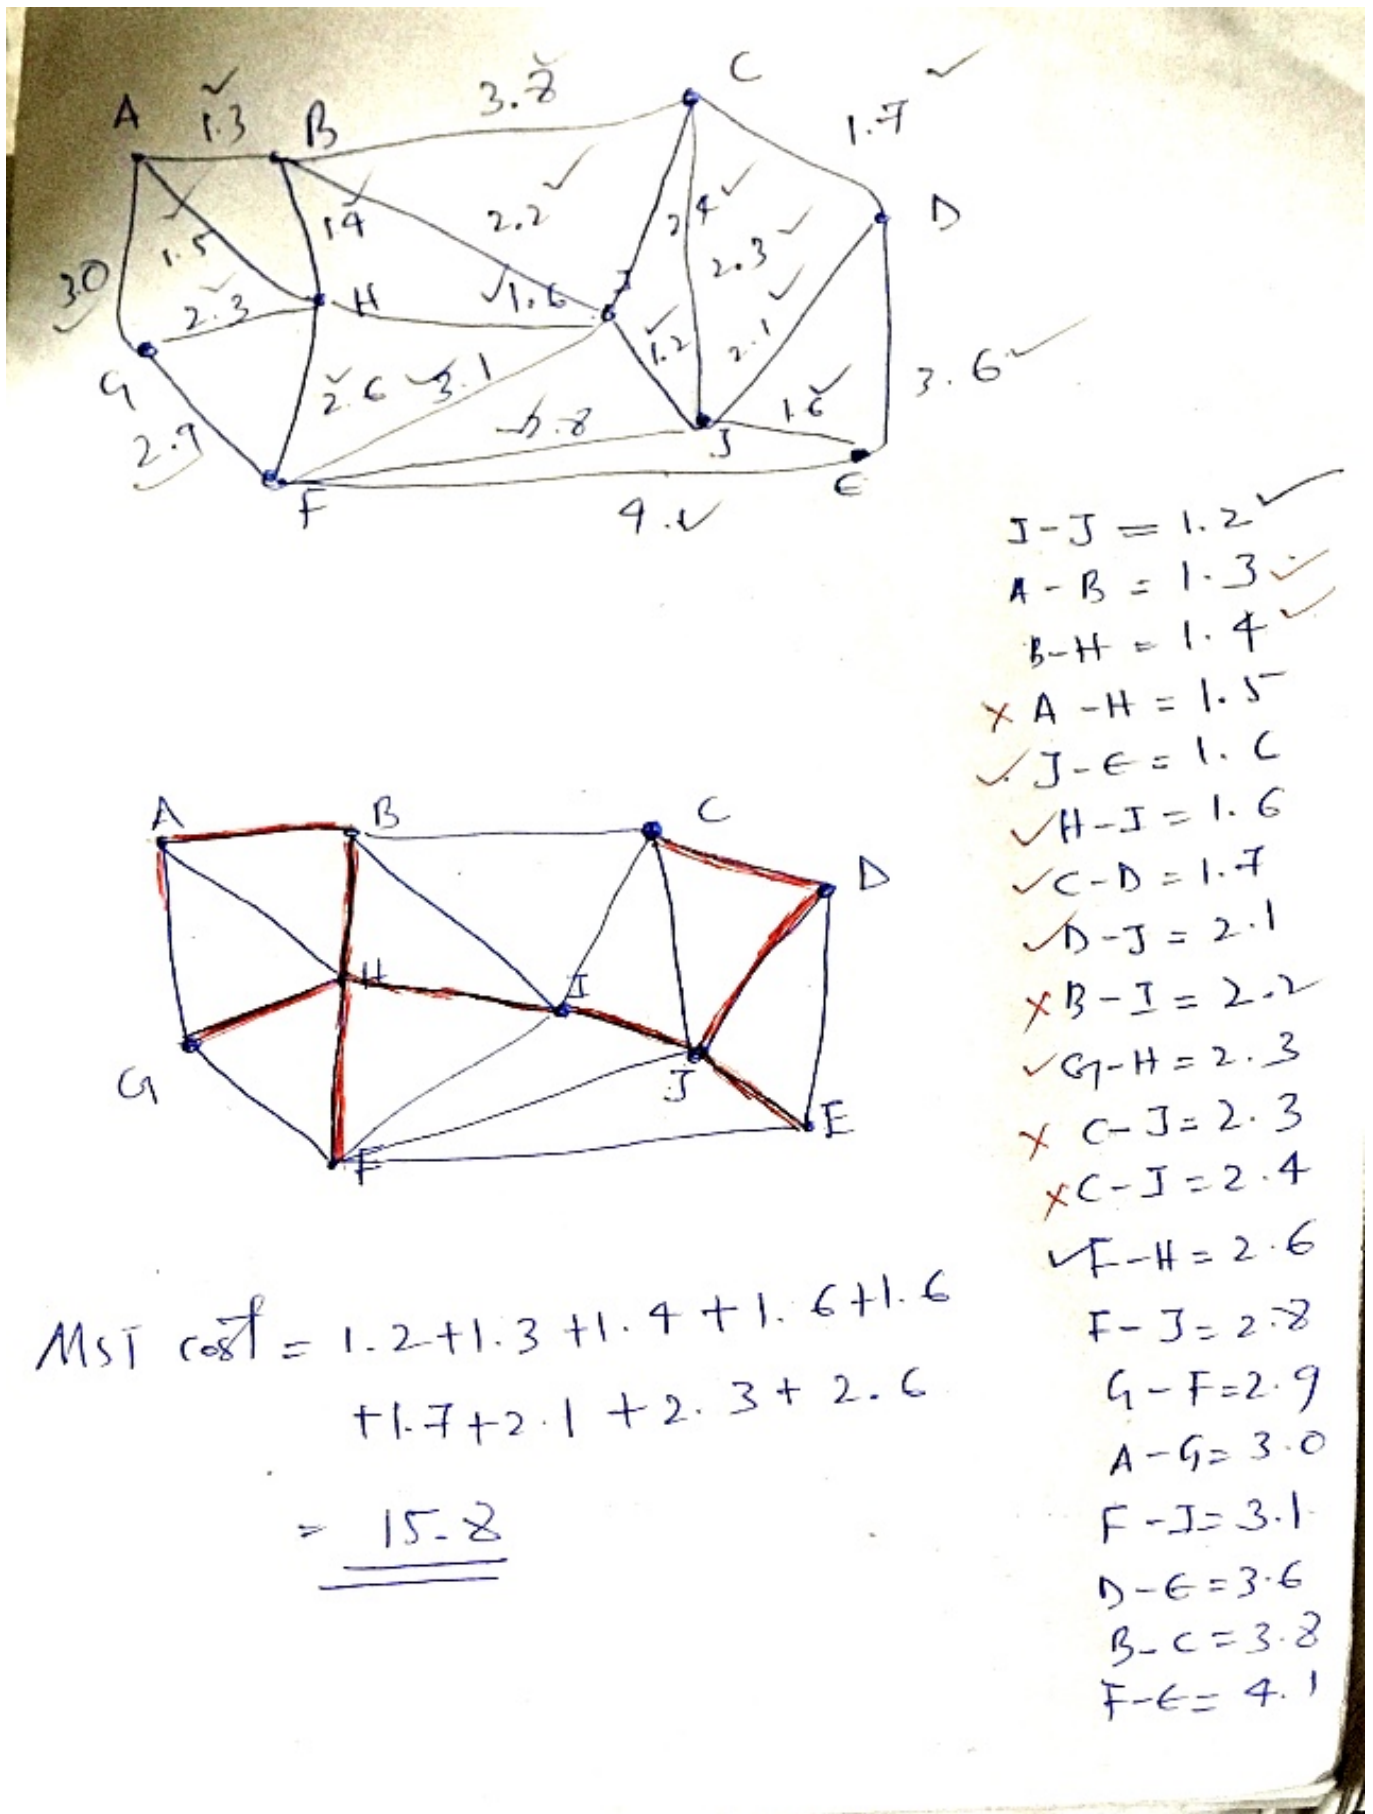 C
A
1.3
B
3.8
1.7
D
1.5
1.4
2.2
2.4
2.3
3.0
2.3
H
1.6
I
1.2
2.1
3.6
G
2.6
3.1
1.6
2.9
.8
J
E
F
4.1
I-J = 1.2
A-B = 1.3
B-H = 1.4
A-H = 1.5
J-E = 1.6
H-I = 1.6
C-D = 1.7
D-J = 2.1
B-I = 2.2
G-H = 2.3
C-J = 2.3
C-I = 2.4
F-H = 2.6
F-J = 2.8
G-F = 2.9
A-G = 3.0
F-I = 3.1
D-E = 3.6
B-C = 3.8
F-E = 4.1
A
B
C
D
H
I
G
J
E
F
MST cost = 1.2+1.3+1.4+1.6+1.6
+1.7+2.1+2.3+2.6
= 15.8